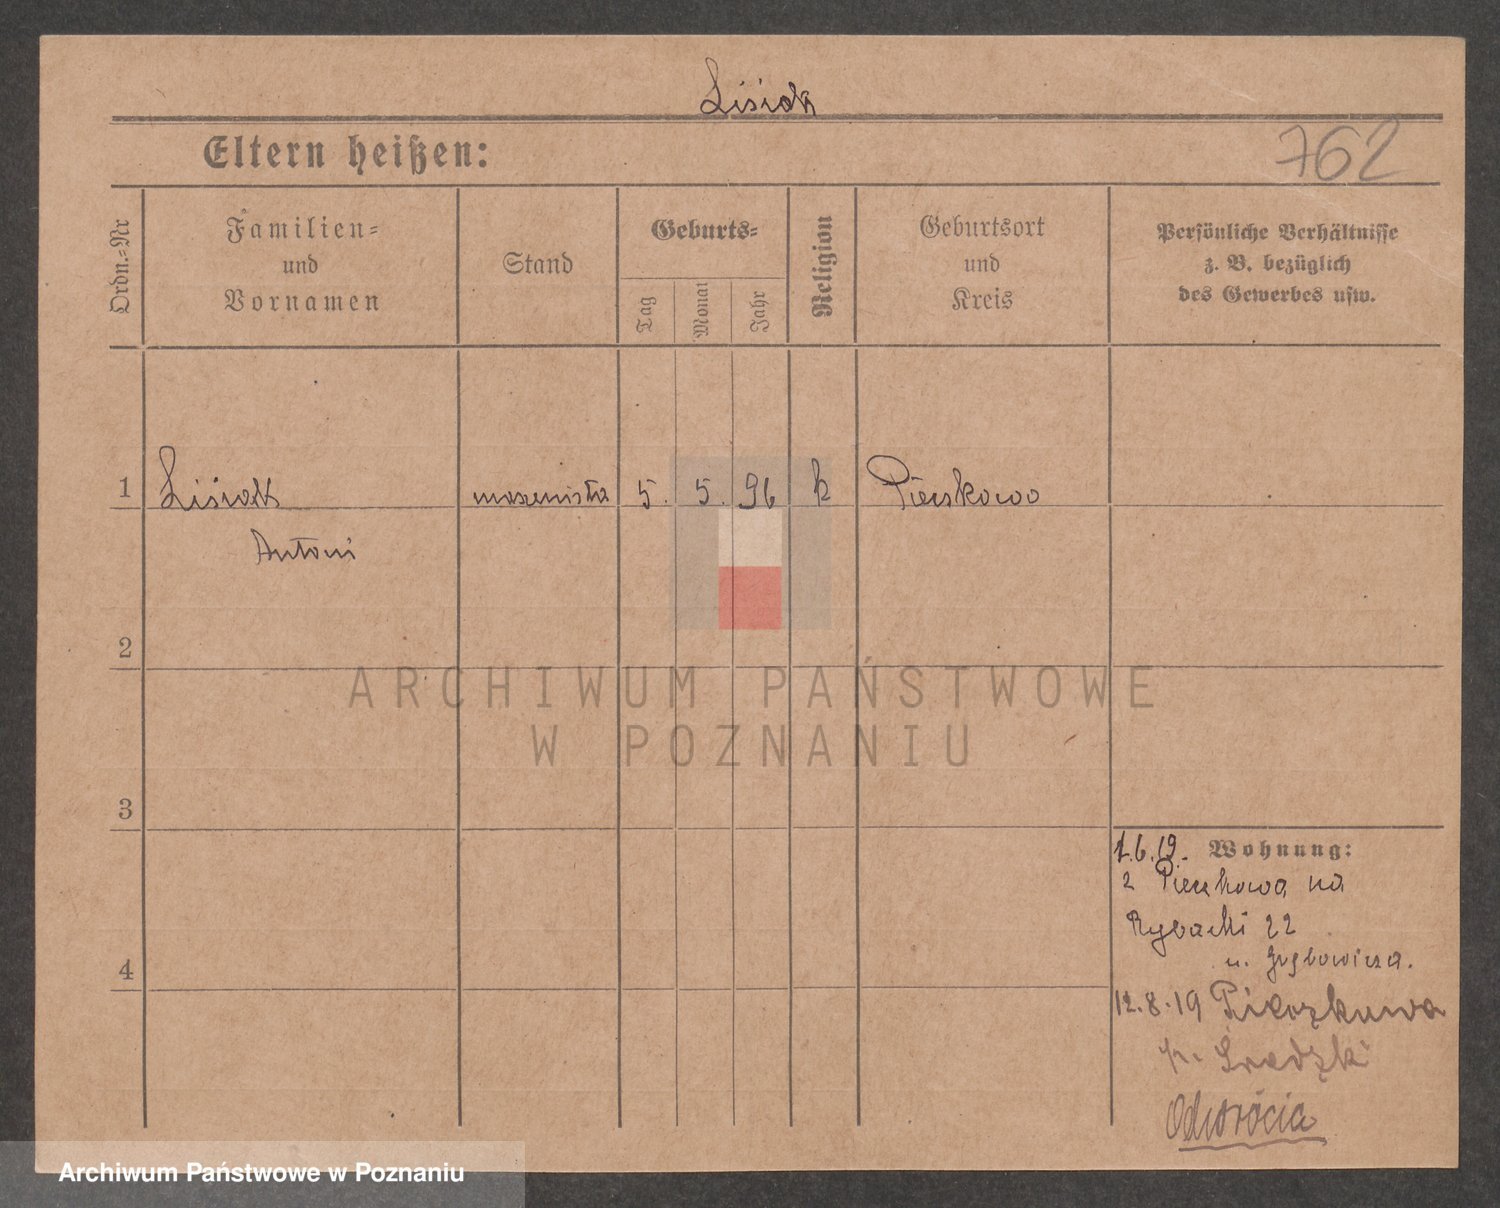 Lisiak
Eltern heißen:
762
Ordn.-Nr
Familien-
und
Vornamen
Stand
Geburts-
Tag
Monat
Jahr
Religion
Geburtsort
und
Kreis
Persönliche Verhältnisse
z. B. bezüglich
des Gewerbes usw.
1 Lisiak maszynista 5. 5. 96 k Pierzkowo
Antoni
2
ARCHIWUM PAŃSTWOWE
W POZNANIU
3
1.6.19. Wohnung:
z na
Rybaki 22
u.
4
12.8.19
p. Średzki
Odwrócić
Archiwum Państwowe w Poznaniu